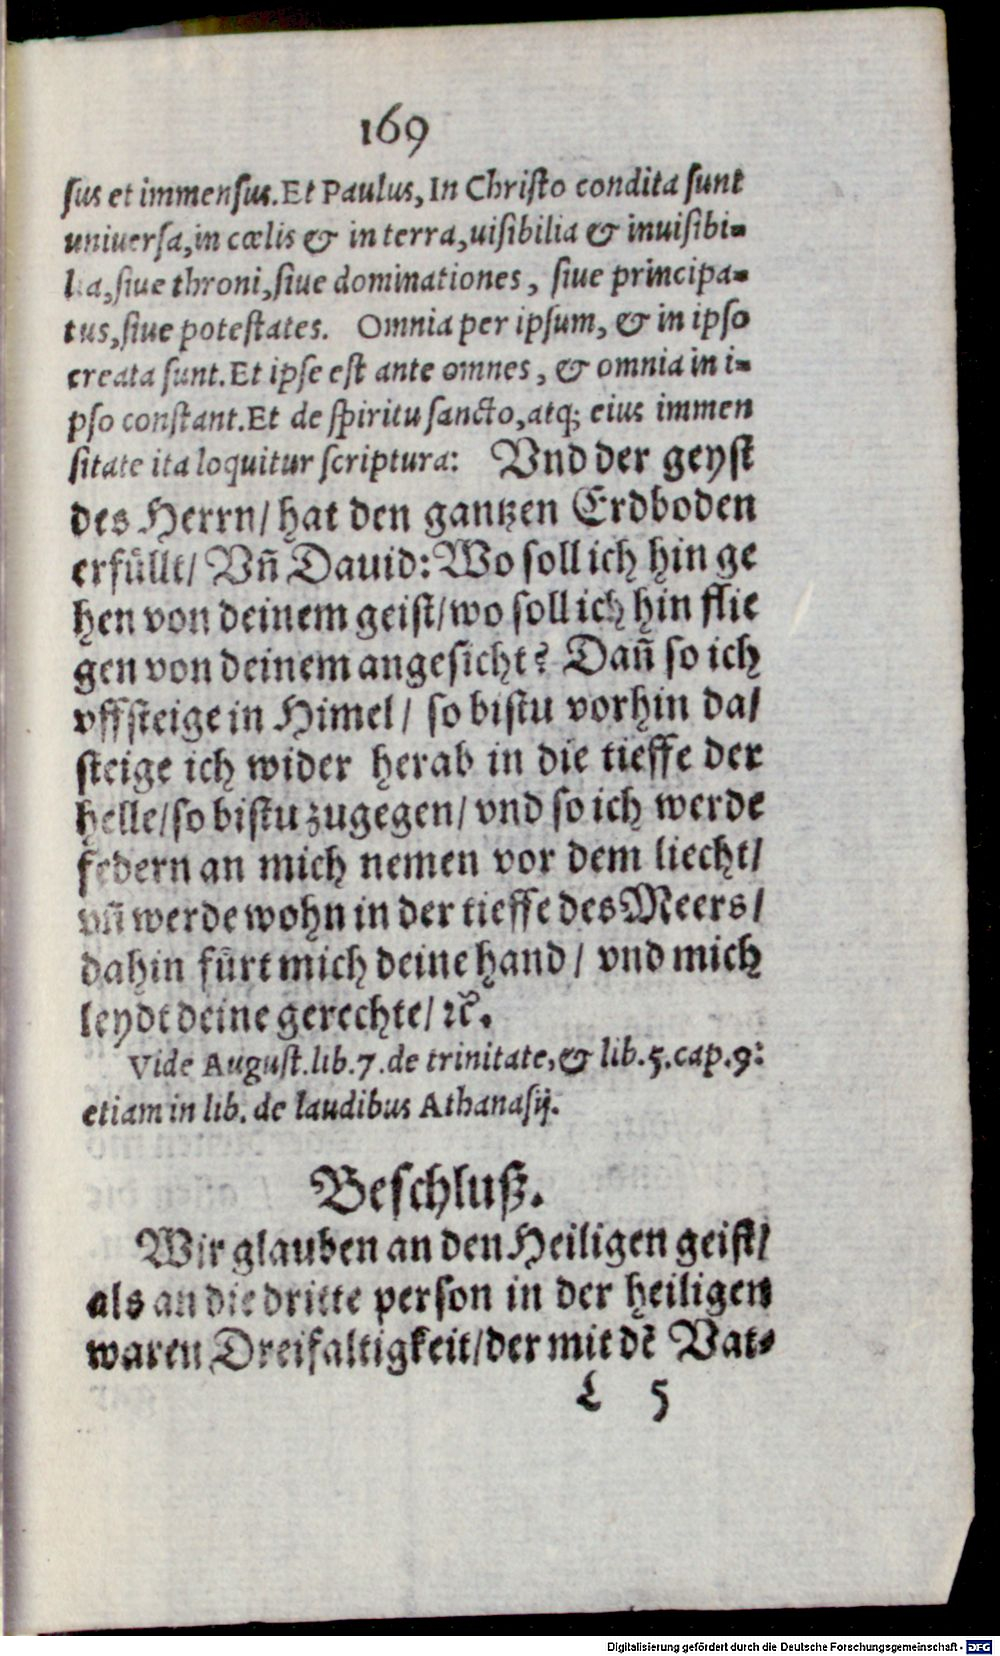 169
ſus et immenſus. Et Paulus, In Chriſto condita ſunt
uniuerſa, in cœlis & in terra, uiſibilia & inuiſibi-
lia, ſiue throni, ſiue dominationes, ſiue principa-
tus, ſiue poteſtates. Omnia per ipſum, & in ipſo
creata ſunt. Et ipſe eſt ante omnes, & omnia in i-
pſo conſtant. Et de ſpiritu ſancto, atq; eius immen
ſitate ita loquitur ſcriptura: Vnd der geyſt
des Herrn/ hat den gantzen Erdboden
erfüllt/ Vñ Dauid: Wo ſoll ich hin ge
hen von deinem geiſt/ wo ſoll ich hin flie
gen von deinem angeſicht? Dañ ſo ich
vffſteige in Himel/ ſo biſtu vorhin da/
ſteige ich wider herab in die tieffe der
helle/ ſo biſtu zugegen/ vnd ſo ich werde
federn an mich nemen vor dem liecht/
vñ werde wohn in der tieffe des Meers/
dahin fürt mich deine hand/ vnd mich
leydt deine gerechte/ ꝛc̃.
Vide Auguſt. lib. 7. de trinitate, & lib. 5. cap. 9:
etiam in lib. de laudibus Athanaſij.
Beſchluß.
Wir glauben an den Heiligen geiſt/
als an die dritte perſon in der heiligen
waren Dreifaltigkeit/ der mit dẽ Vat-
L 5
Digitalisierung gefördert durch die Deutsche Forschungsgemeinschaft - DFG